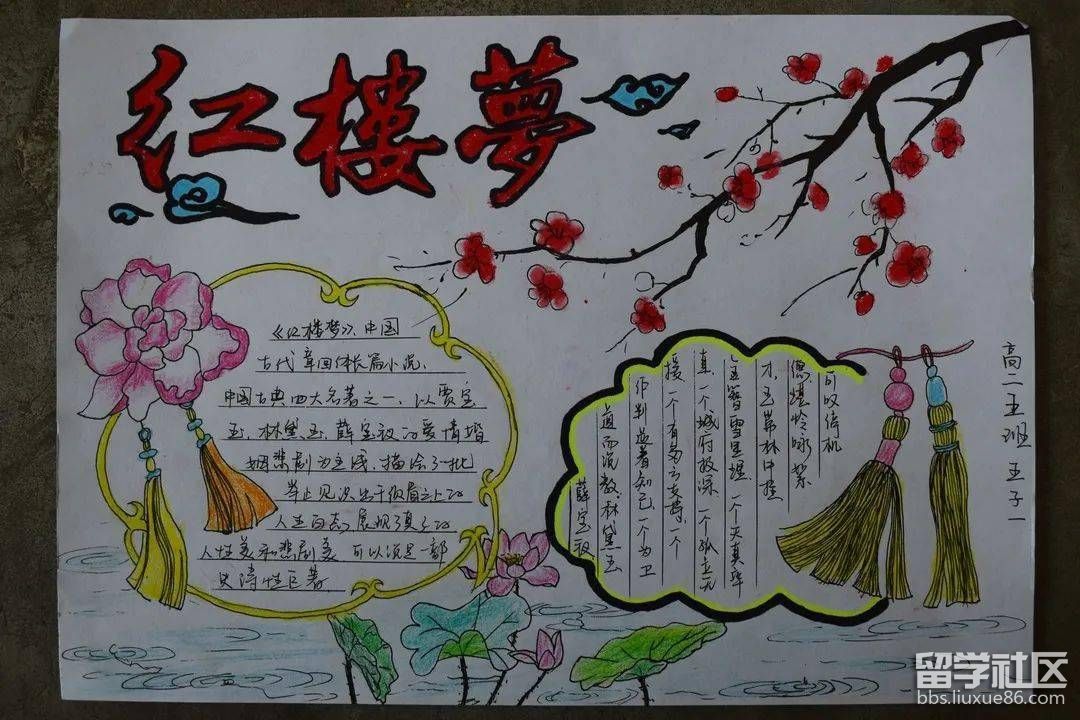 红楼夢
《红楼梦》、中国
古代章回体长篇小说、
中国古典四大名著之一、以贾宝
玉、林黛玉、薛宝钗的爱情婚
姻悲剧为主线、描绘了一批
举止见识出于须眉之上的
人生百态,展现了真正的
人性美和悲剧美,可以说是一部
史诗性巨著
可叹停机
德堪怜咏絮
才,玉带林中挂
金簪雪里埋、一个天真率
真一个城府极深、一个孤立无
接一个有多方支持、一个
作判逆者知己、一个为卫
道而说教、林黛玉
薛宝钗
高二五班 王子一
留学社区
bbs.liuxue86.com